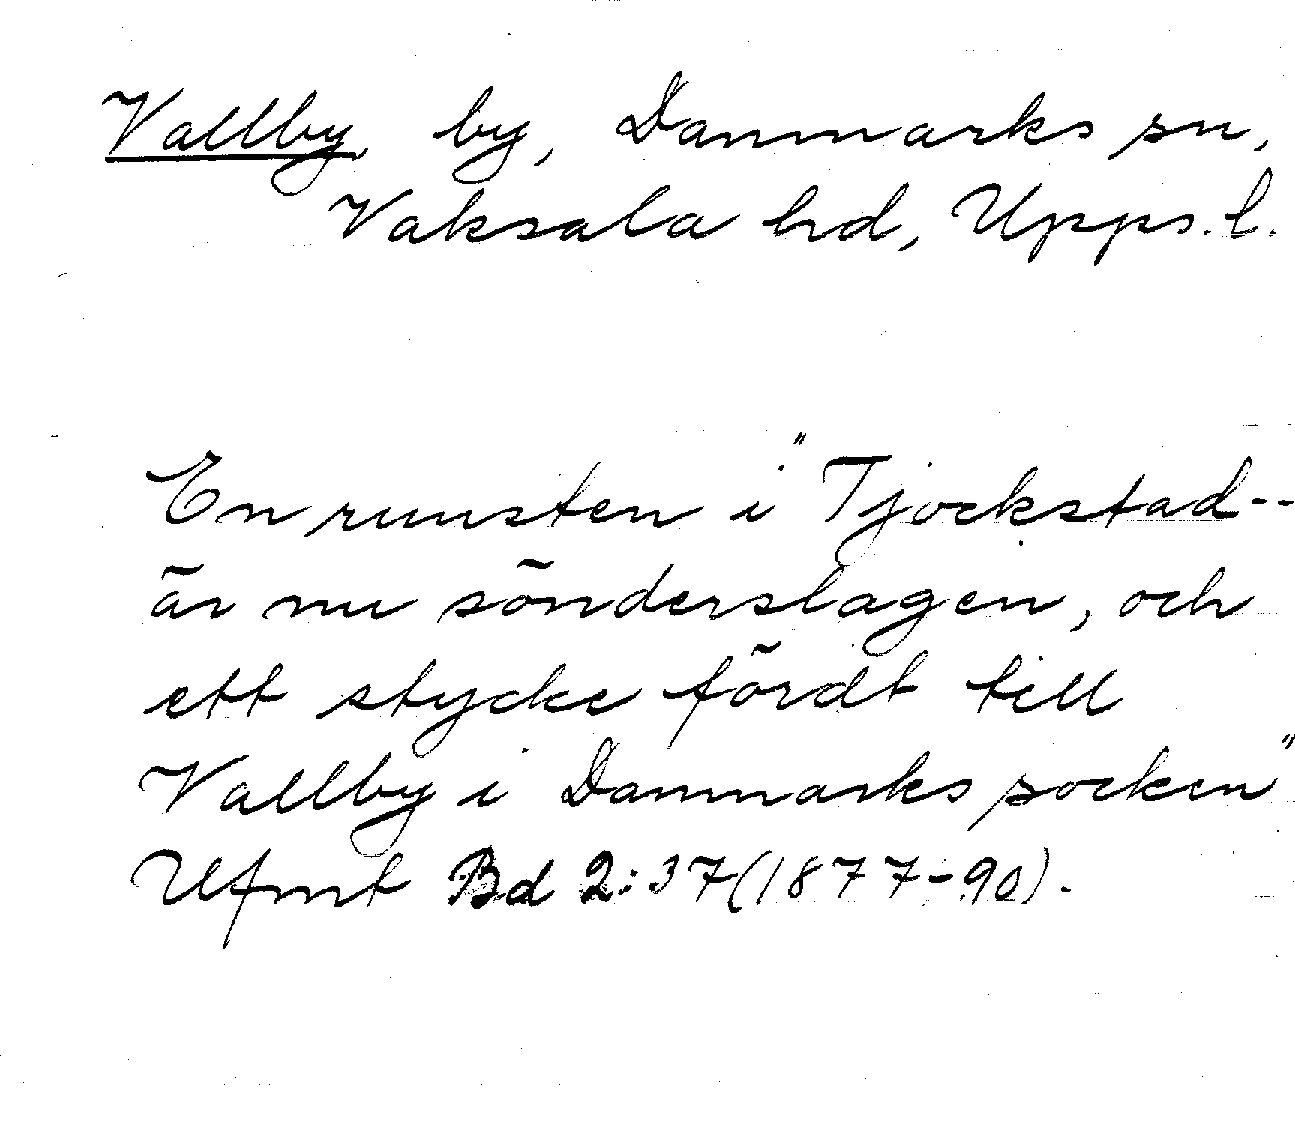 Vallby, by, Danmarks sn,
Vaksala hd, Upps. l.
En runsten i "Tjockstad--
är nu sönderslagen, och
ett stycke fördt till
Vallby i Danmarks socken"
Ufmt Bd 2:37(1877-90).